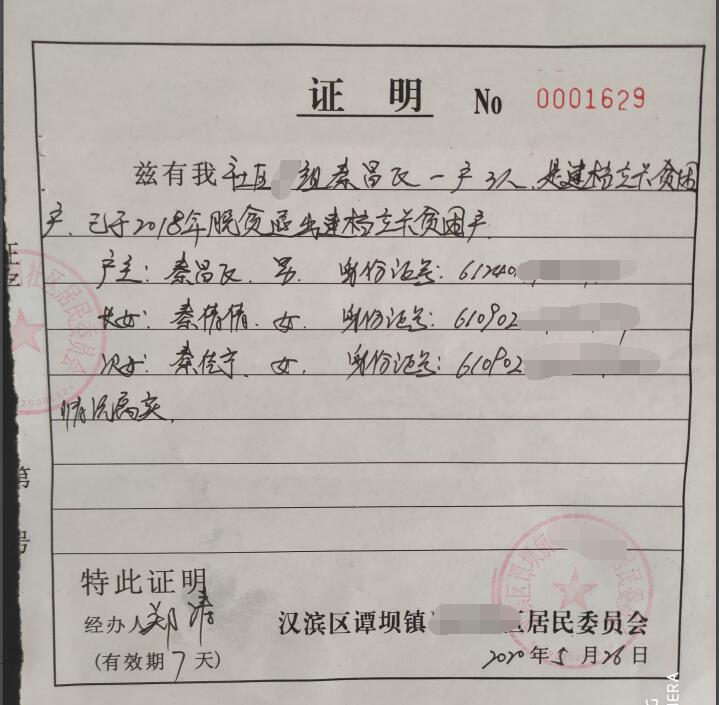 证明 No 0001629
兹有我社区 组秦昌反一户3人,是建档立卡贫困
户,已于2018年脱贫退出建档立卡贫困户
户主:秦昌反、男 身份证号:612401
长女:秦倩倩、女 身份证号:610902
次女:秦佳宁、女 身份证号:610902
情况属实.
证
第
号
特此证明
经办人郑涛
(有效期7天)
汉滨区谭坝镇 区居民委员会
2020年5月26日
社区居民委员会
汉滨区谭坝镇 居民委员会